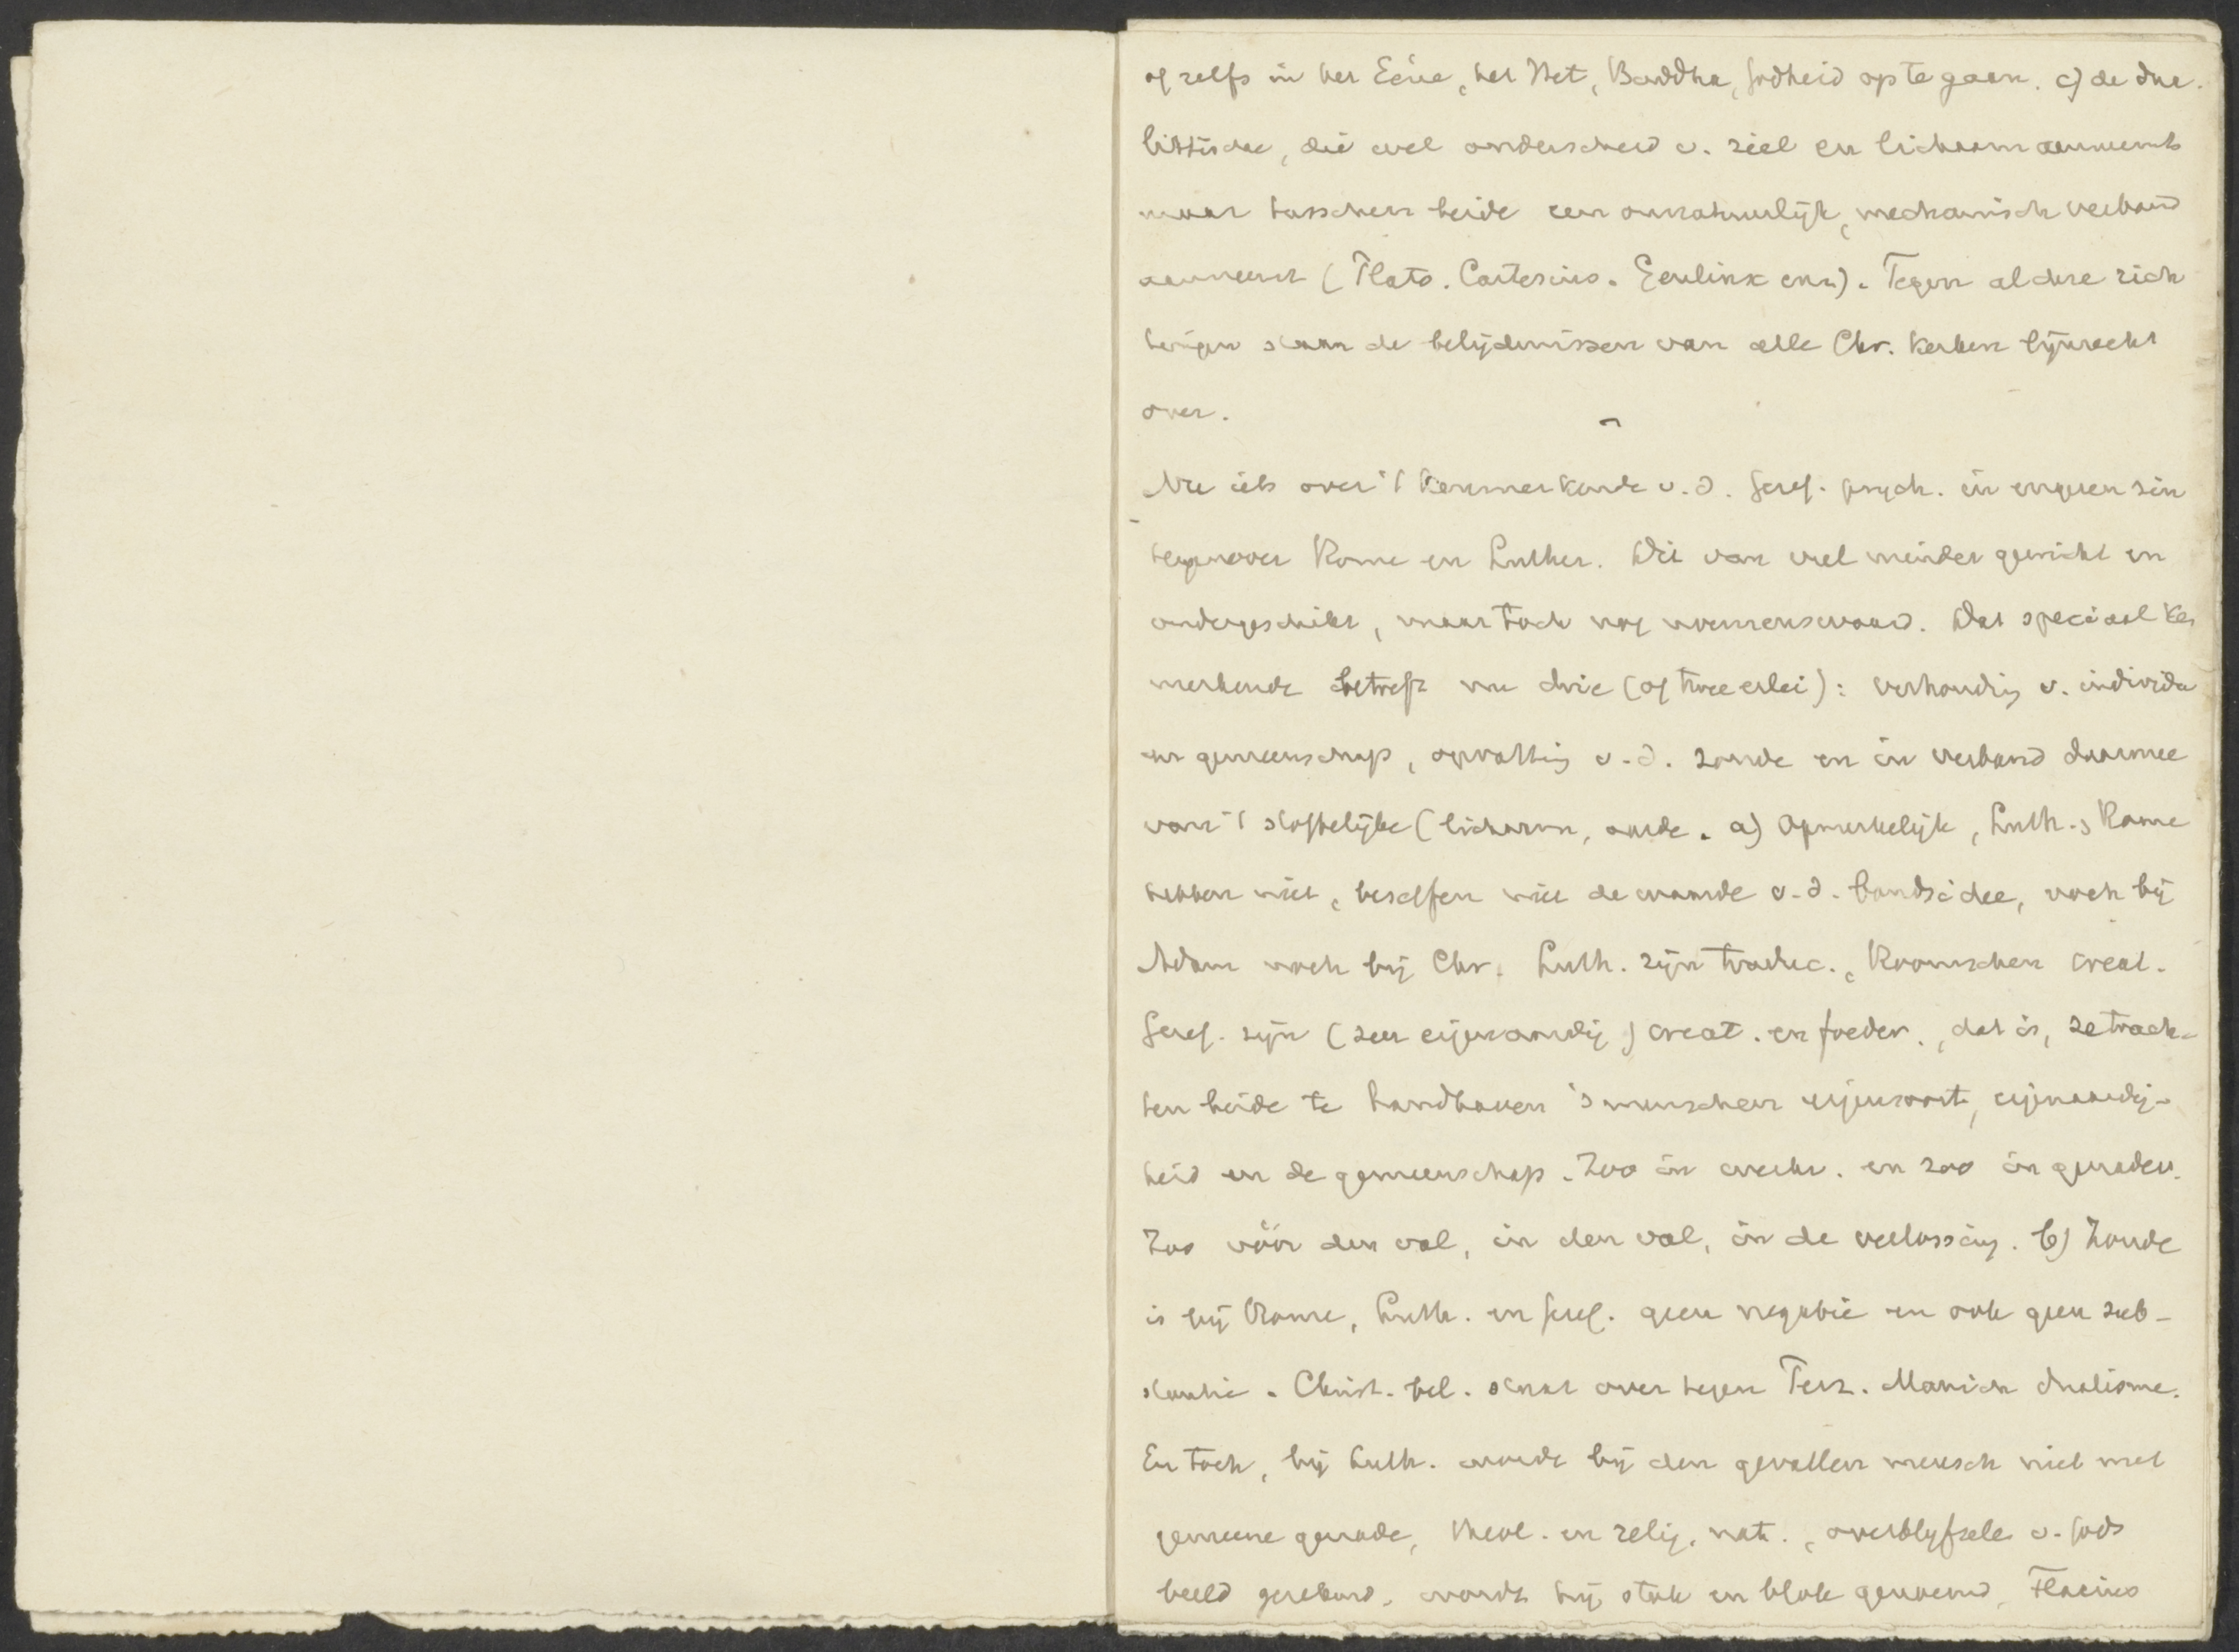 of zelfs in het Eéne, het Niet, Boeddha, Godheid op te gaan. c) de dua-
listische, die wel onderscheid v. ziel en lichaam aanneemt
maar tusschen beide een onnatuurlijk, mechanisch verband
aanneemt (Plato. Cartesius. Geulinx enz). Tegen al deze rich
tingen staan de belijdenissen van alle Chr. kerken lijnrecht
over.
Nu iets over 't kenmerkende v.d. Geref. psych. in engeren zin
tegenover Rome en Luther. Dit van veel minder gewicht en
ondergeschikt, maar toch nog noemenswaard. Dat speciaal ken
merkende betreft nu drie (of tweeerlei): verhouding v. individu
en gemeenschap, opvatting v.d. zonde en in verband daarmee
van 't stoffelijke (lichaam, aarde. a) Opmerkelijk, Luth. Rome
hebben niet, beseffen niet de waarde v.d. bondsidee, noch bij
Adam noch bij Chr. Luth. zijn traduc., Roomschen creat.
Geref. zijn (zeer eigenaardig) creat. en foeder., dat is, ze trach-
ten beide te handhaven 's menschen eigensoort, eigenaardig-
heid en de gemeenschap. Zoo in werkv. en zoo in genadev.
Zoo vóór den val, in den val, in de verlossing. b) Zonde
is bij Rome, Luth. en Geref. geen negatie en ook geen sub-
stantie. Christ. bel. staat over tegen Perz. Manich dualisme.
En toch, bij Luth. wordt bij den gevallen mensch niet met
gemeene genade, theol. en relig. nat., overblijfsele v. Gods
beeld gerekend, wordt hij stok en blok genoemd, Flacius